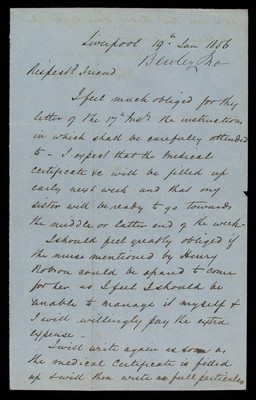 Liverpool 19th Jan 1856
Respectd Friend
I feel much obliged for thy
letter of the 17th Inst. the instructions
in which shall be carefully attended
to - I expect that the medical
certificate &c will be filled up
early next week and that my
sister will be ready to go towards
the middle or latter end of the week -
I should feel greatly obliged if
the nurse mentioned by Henry
Robson could be spared to come
for her as I feel I should be
unable to manage it myself &
I will willingly pay the extra
expense -
I will write again as soon as
the medical certificate is filled
up & will then write as full particulars